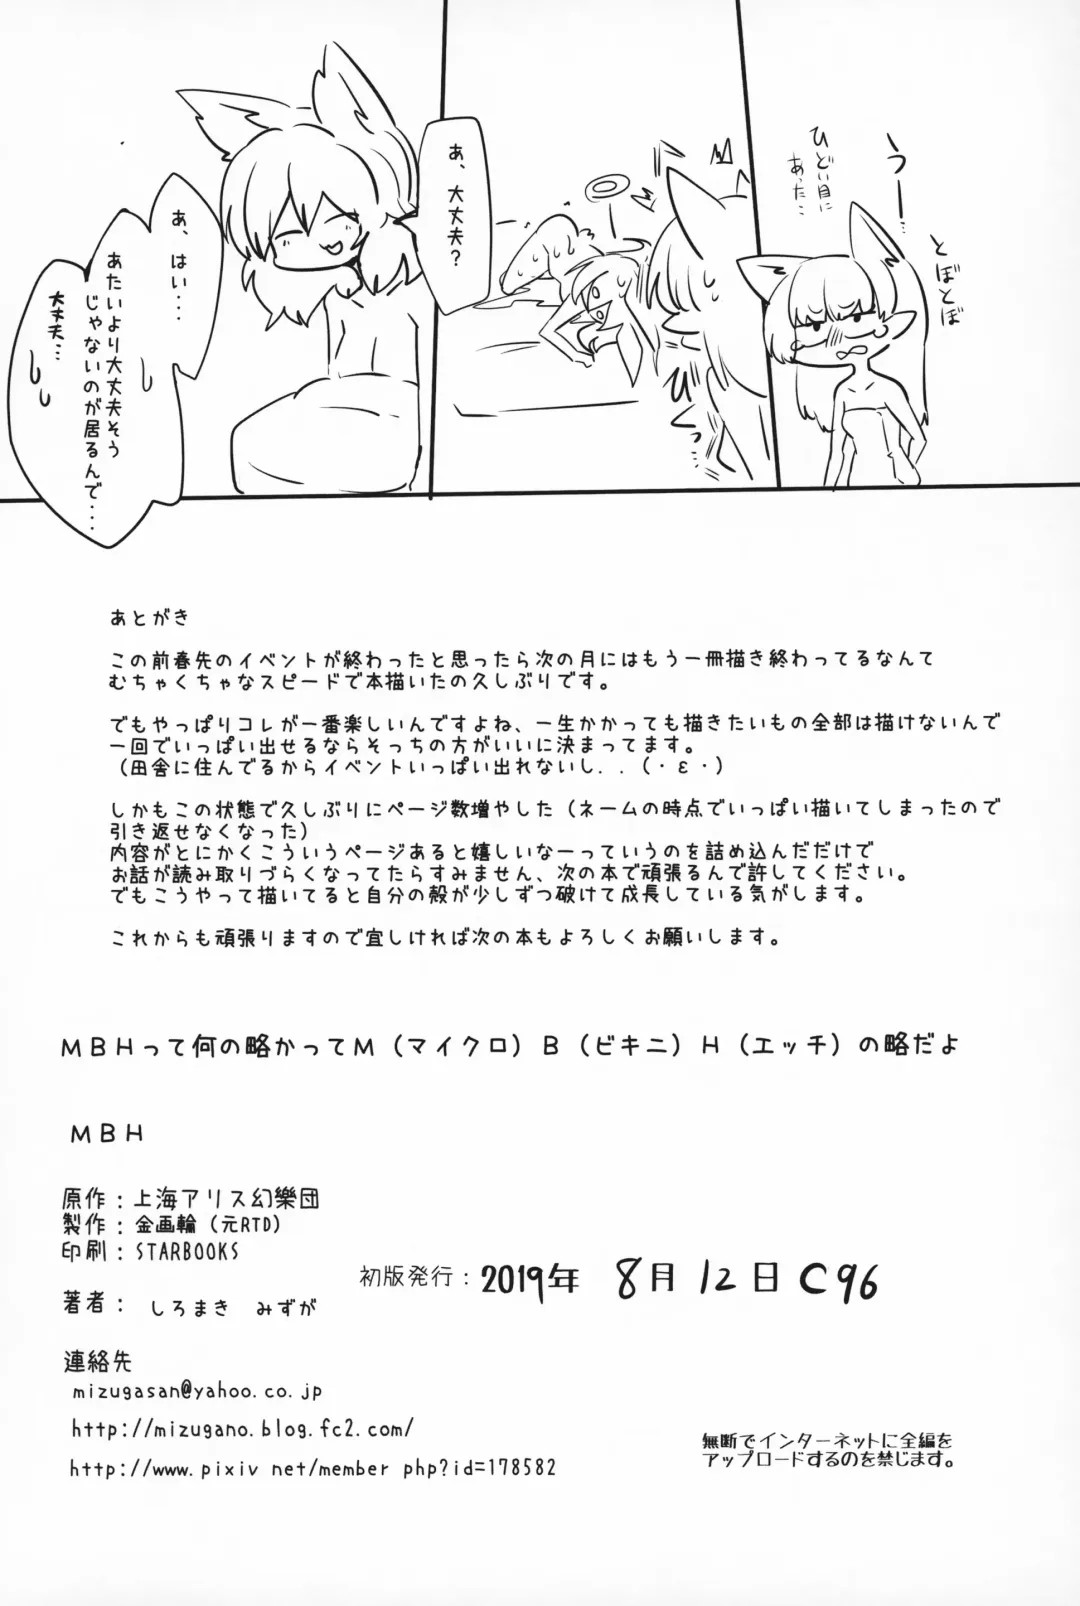 うー
ひどい目に
あった…
とぼとぼ
ひくっ
あ、大丈夫?
あ、はい...
あたいより大丈夫そう
じゃないのが居るんで....
大丈夫...
あとがき
この前春先のイベントが終わったと思ったら次の月にはもう一冊描き終わってるなんて
むちゃくちゃなスピードで本描いたの久しぶりです。
でもやっぱりコレが一番楽しいんですよね、一生かかっても描きたいもの全部は描けないんで
一回でいっぱい出せるならそっちの方がいいに決まってます。
(田舎に住んでるからイベントいっぱい出れないし．．(・ε・)
しかもこの状態で久しぶりにページ数増やした(ネームの時点でいっぱい描いてしまったので
引き返せなくなった)
内容がとにかくこういうページあると嬉しいなーっていうのを詰め込んだだけで
お話が読み取りづらくなってたらすみません、次の本で頑張るんで許してください。
でもこうやって描いてると自分の殻が少しずつ破けて成長している気がします。
これからも頑張りますので宜しければ次の本もよろしくお願いします。
MBHって何の略かってM(マイクロ)B(ビキニ)H(エッチ)の略だよ
MBH
原作：上海アリス幻樂団
製作：金画輪(元RTD)
印刷：STARBOOKS
初版発行：2019年 8月12日 C96
著者： しろまき みずが
連絡先
mizugasan@yahoo.co.jp
http://mizugano.blog.fc2.com/
http://www.pixiv net/member php?id=178582
無断でインターネットに全編を
アップロードするのを禁じます。